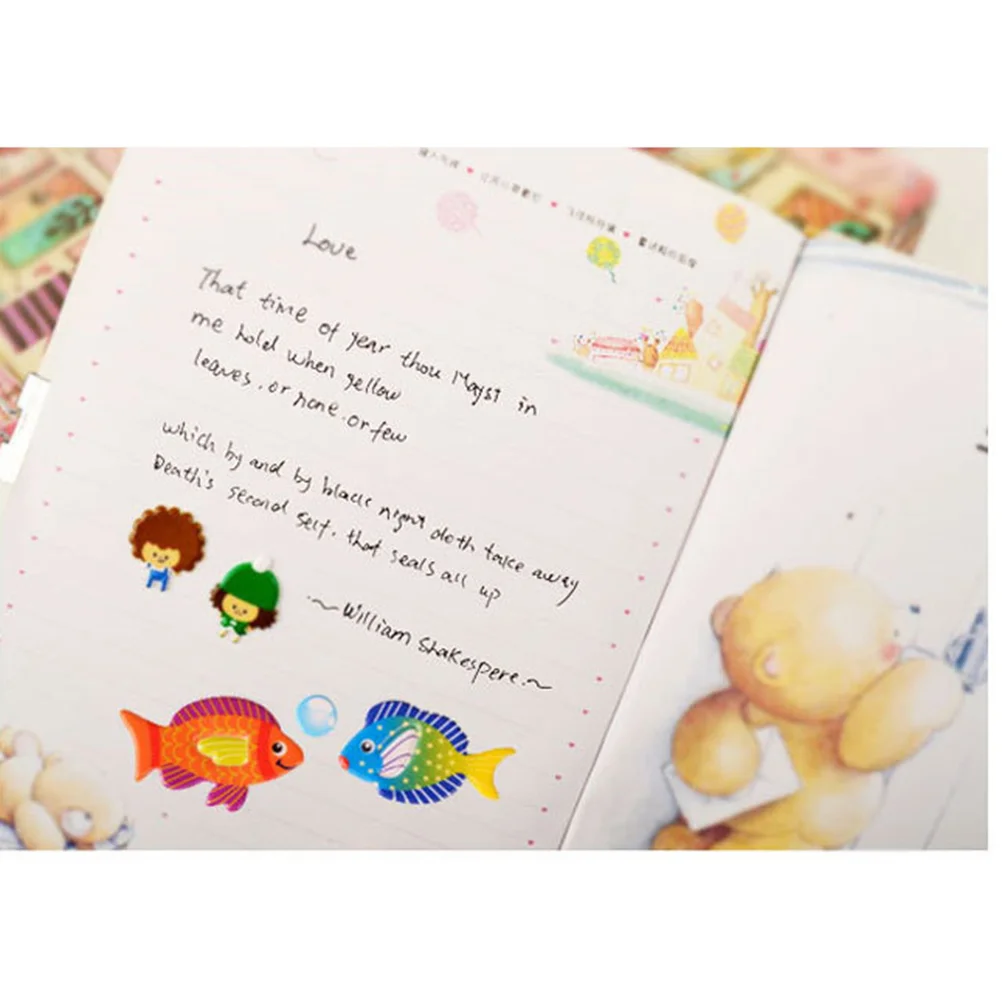 Love
That time of year thou Mayst in
me hold when yellow
leaves.or none.or few
which by and by black night doth take away
Death's second self. that seals all up
~William Shakespere.~